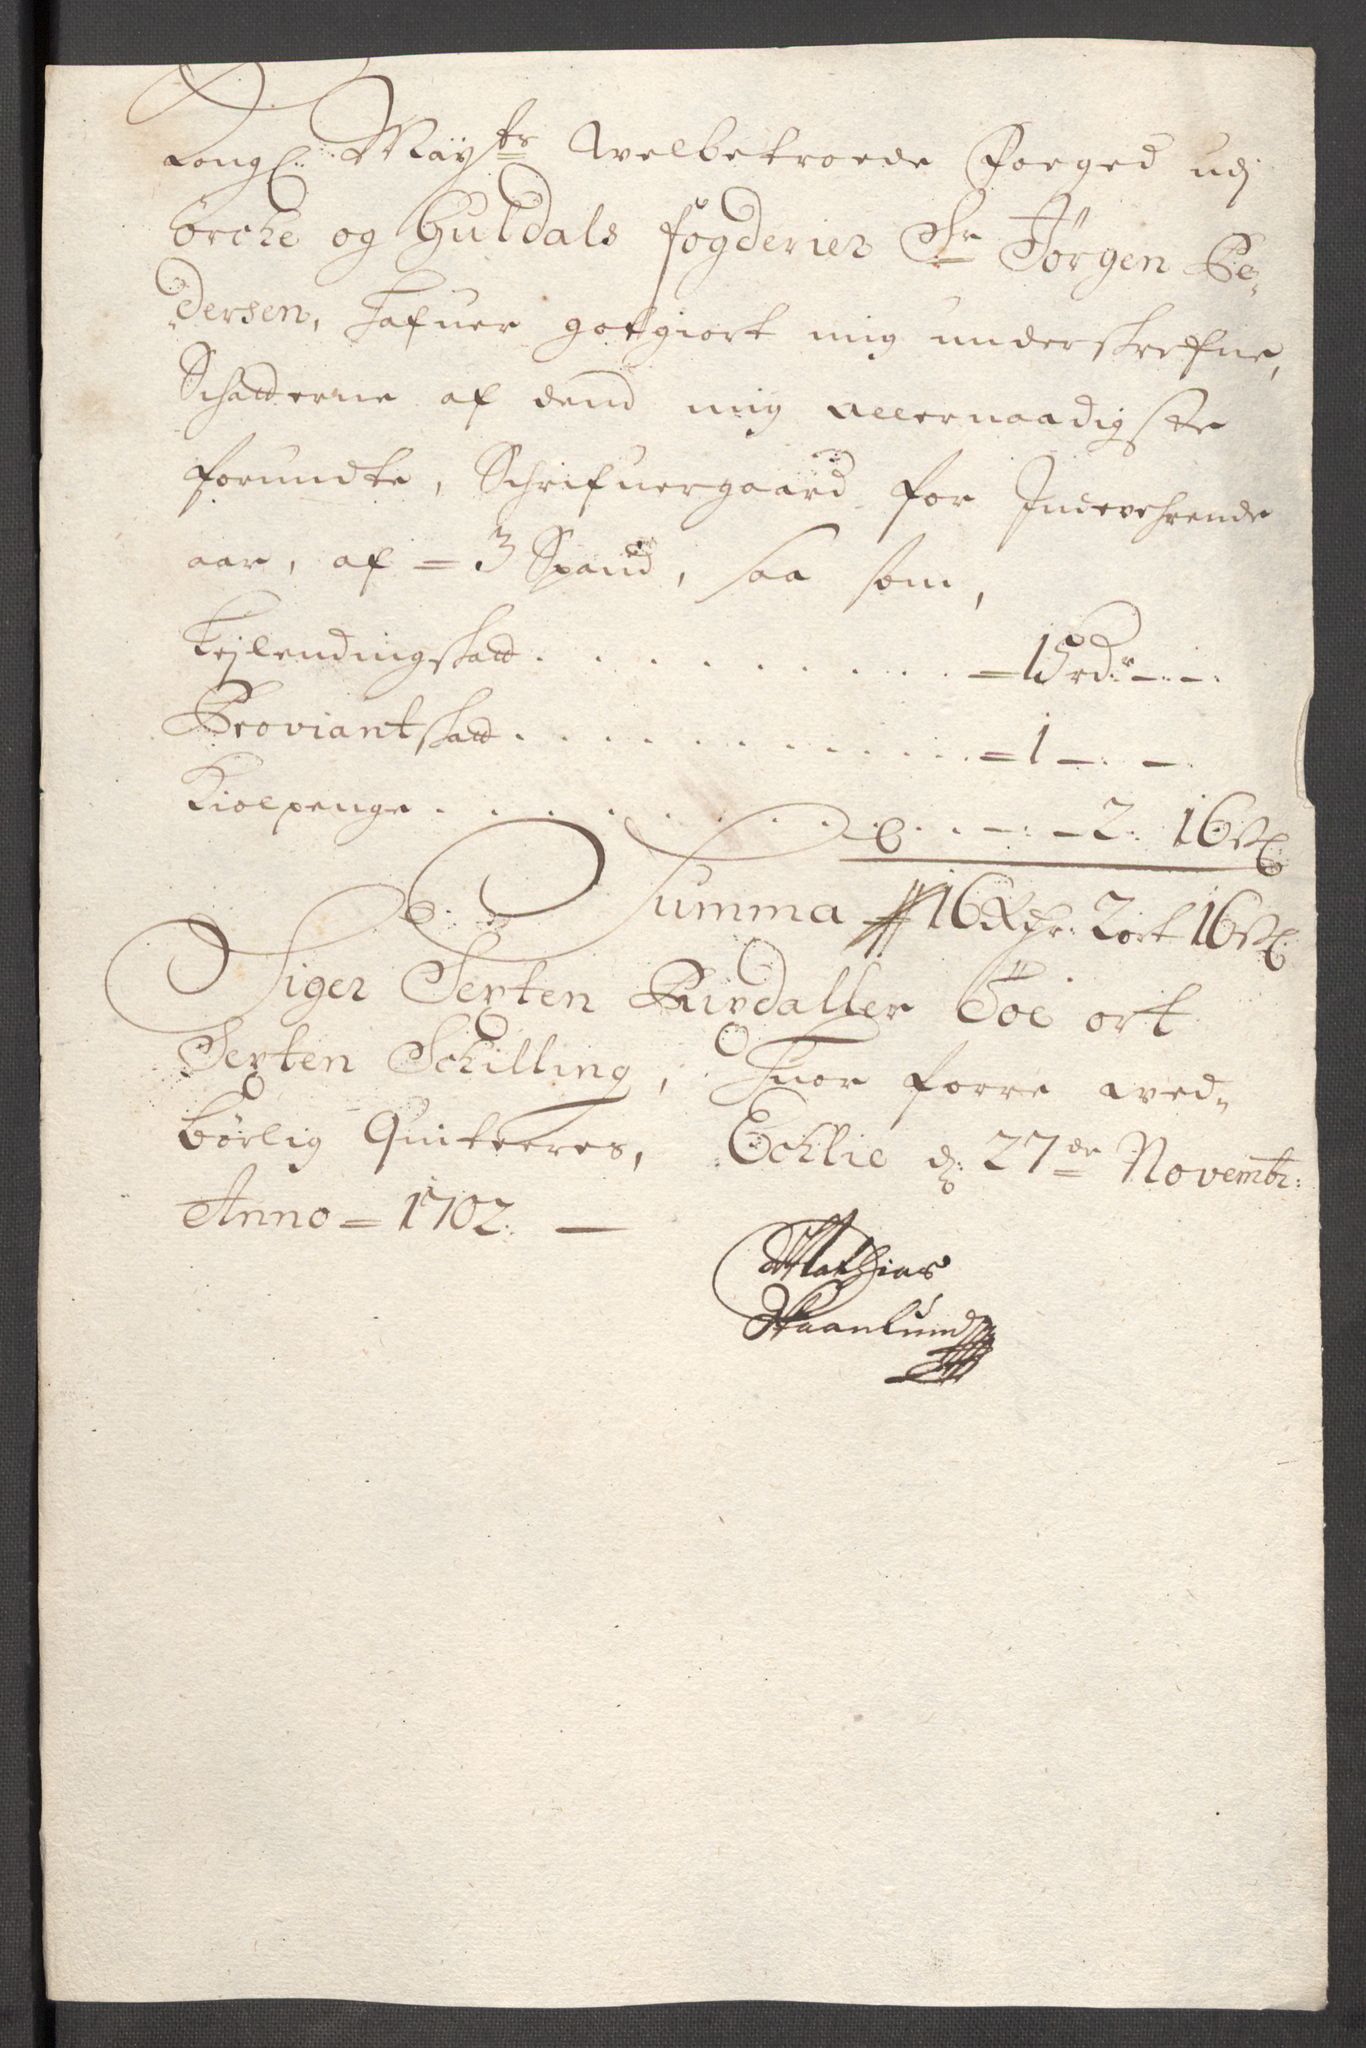 Kongl: Mayts welbetroede Foeged udj
Örche og Guldals fogderier Sr Jörgen Pe-
dersen, hafuer gotgiort mig underskrefne,
Schatterne af dend mig allernaadigste
forundte, Schrifuergaard for Indevehrende
aar, af = 3 Spand, saa som,
Lejlendingskatt . . . . . . . . . = 15 rdr - . - .
Proviantskatt . . . . . . . . . . . = 1 - . - .
Kiolpenge . . . . . . . . . . - . - 2. 16 sk:
Summa 16 Rdr: 2 ort 16 sk:
Siger Sexten Rixdaller Töe ort
Sexten Schilling, huor forre wed-
börlig Quiteeres, Echlie d: 27de Novembr:
Anno = 1702. -
Mathias
Skaanlund